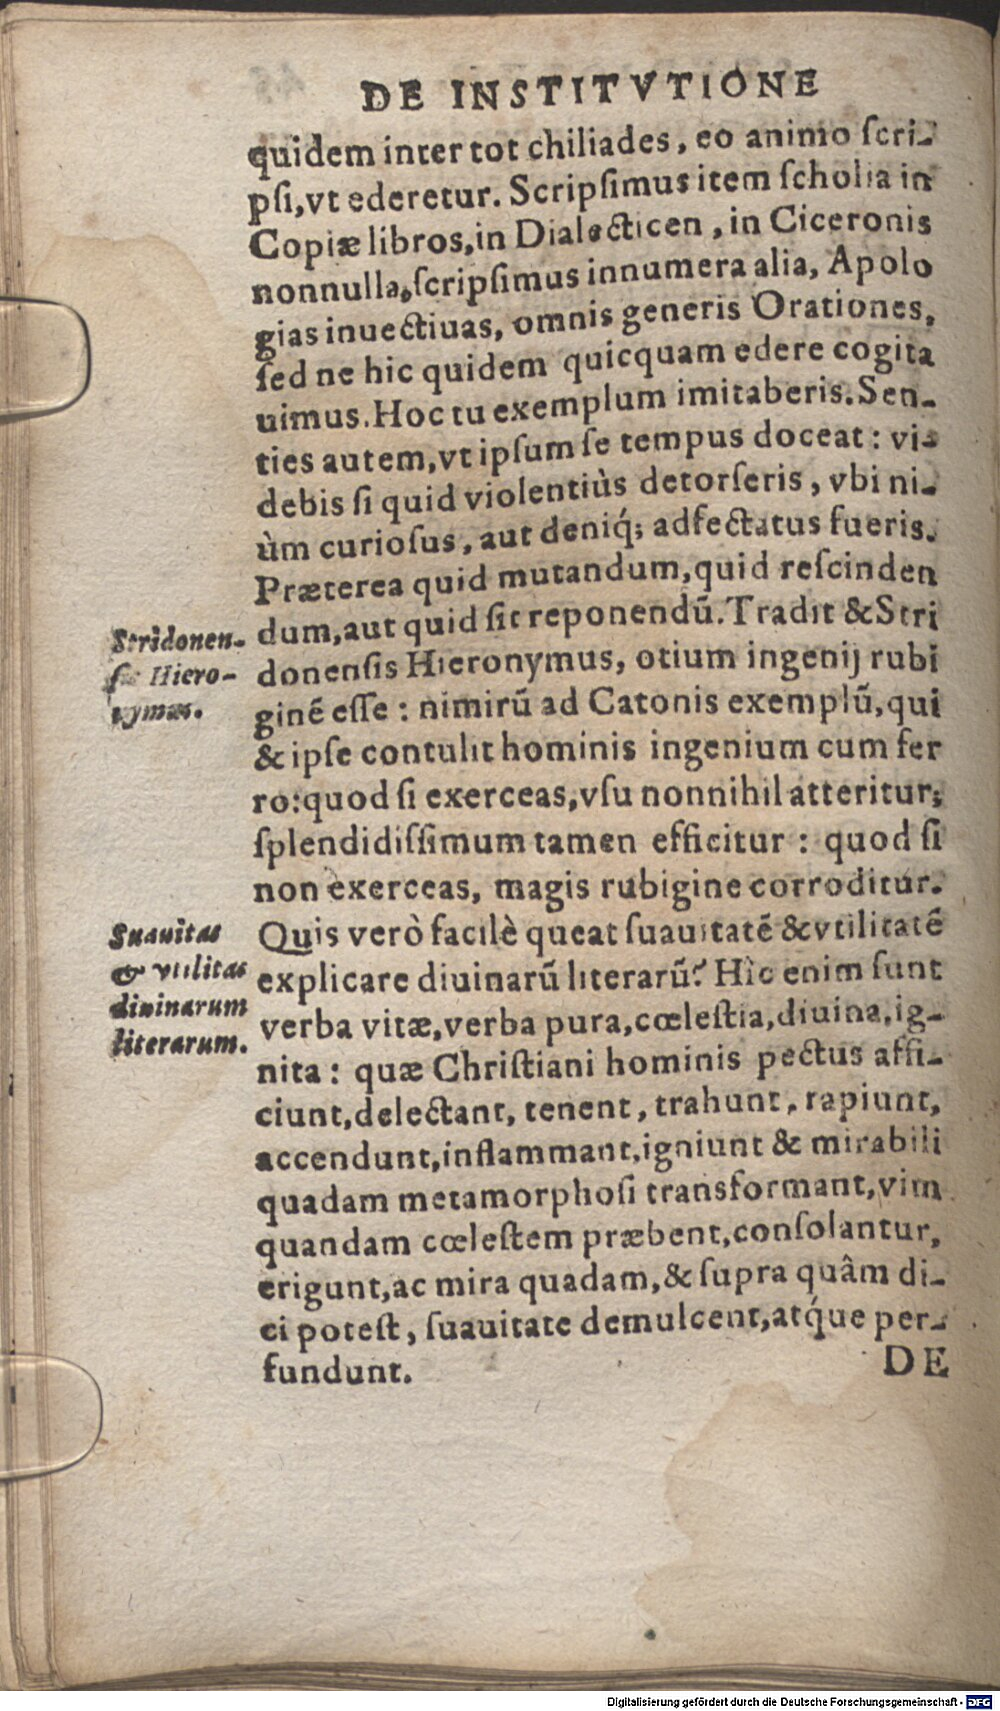 DE INSTITVTIONE
quidem inter tot chiliades, eo animo ſcri-
pſi, vt ederetur. Scripſimus item ſcholia in
Copiæ libros, in Dialecticen, in Ciceronis
nonnulla, ſcripſimus innumera alia, Apolo
gias inuectiuas, omnis generis Orationes,
ſed ne hic quidem quicquam edere cogita
uimus. Hoc tu exemplum imitaberis. Sen-
ties autem, vt ipſum ſe tempus doceat: vi-
debis ſi quid violentiùs detorſeris, vbi ni-
ùm curioſus, aut deniq́; adfectatus fueris.
Præterea quid mutandum, quid reſcinden
dum, aut quid ſit reponendũ. Tradit & Stri
donenſis Hieronymus, otium ingenij rubi
ginẽ eſſe: nimirũ ad Catonis exemplũ, qui
& ipſe contulit hominis ingenium cum fer
ro: quod ſi exerceas, vſu nonnihil atteritur;
ſplendidiſſimum tamen efficitur: quod ſi
non exerceas, magis rubigine corroditur.
Quis verò facilè queat ſuauitatẽ & vtilitatẽ
explicare diuinarũ literarũ? Hîc enim ſunt
verba vitæ, verba pura, cœleſtia, diuina, ig-
nita: quæ Chriſtiani hominis pectus affi-
ciunt, delectant, tenent, trahunt, rapiunt,
accendunt, inflammant, igniunt & mirabili
quadam metamorphoſi transformant, vim
quandam cœleſtem præbent, conſolantur,
erigunt, ac mira quadam, & ſupra quâm di-
ci poteſt, ſuauitate demulcent, atq́ue per-
fundunt.
DE
Stridonen-
ſis Hiero-
nymus.
Suauitas
& vtilitas
diuinarum
literarum.
Digitalisierung gefördert durch die Deutsche Forschungsgemeinschaft - DFG